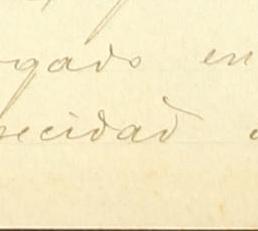 gado en
ecidad